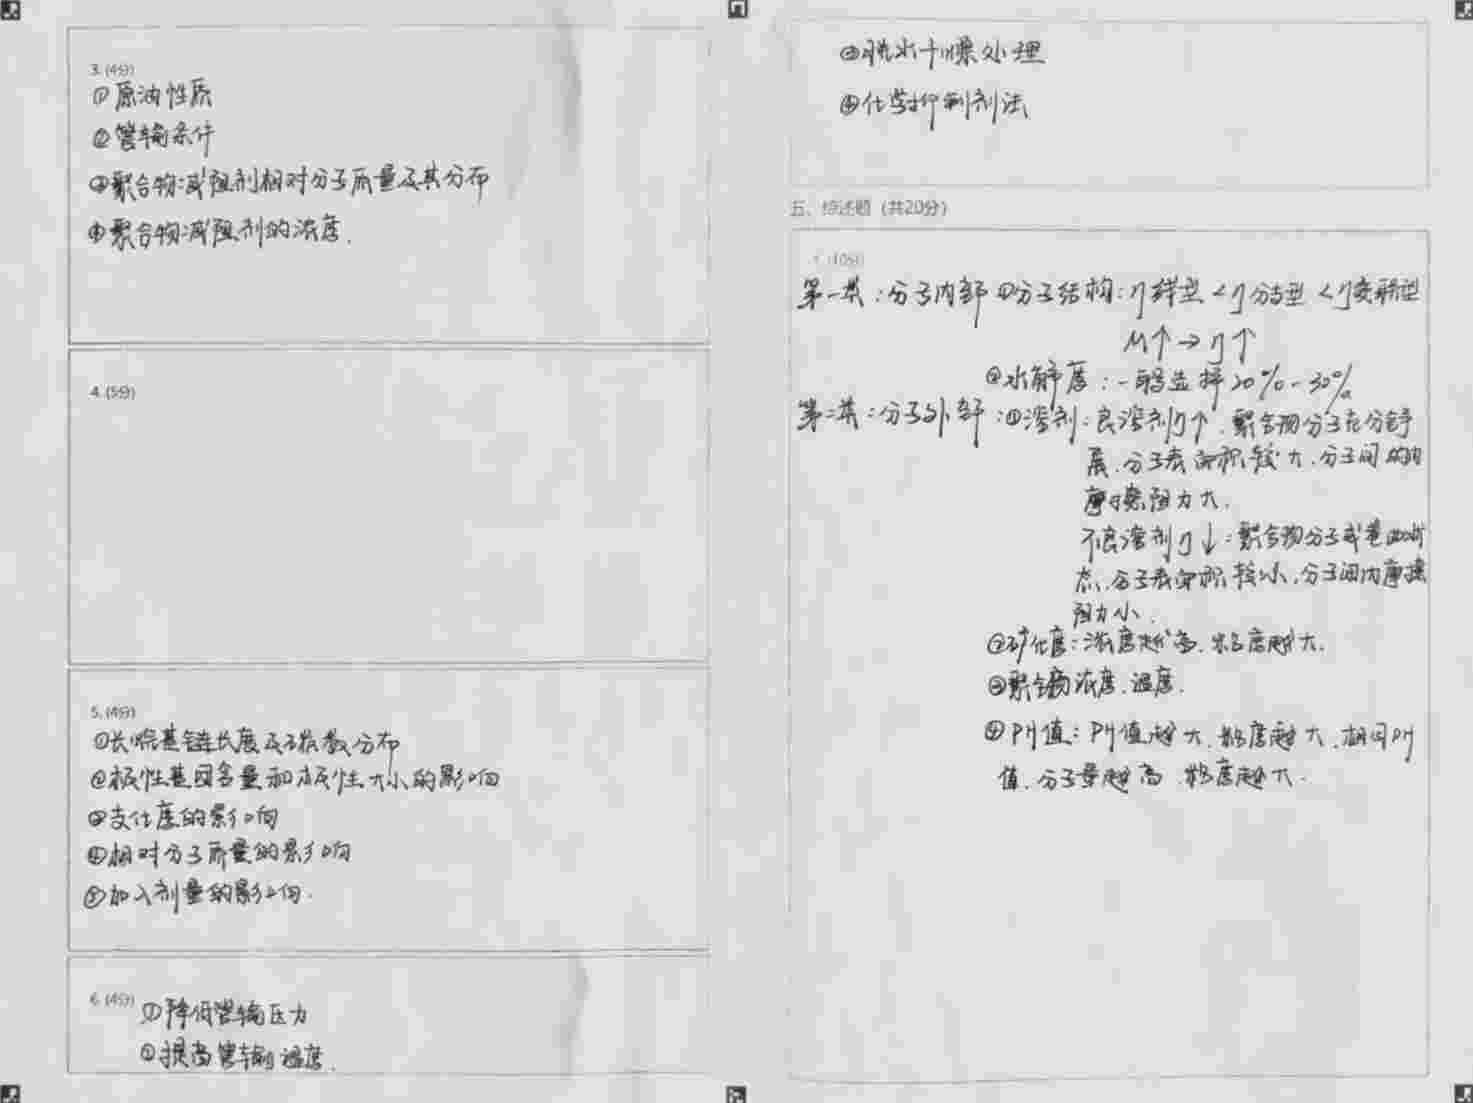 3. (4分)
①原油性质
②管输条件
③聚合物减阻剂相对分子质量及其分布
④聚合物减阻剂的浓度.
4. (5分)
5. (4分)
①长烷基链长度及碳数分布
②极性基团含量和极性大小的影响
③支化度的影响
④相对分子质量的影响
⑤加入剂量的影响.
6. (4分)
①降低管输压力
②提高管输温度.
③脱水干燥处理
④化学抑制剂法
五、综述题 (共20分)
1. (10分)
第一类:分子内部 ①分子结构:η线型<η分支型<η交联型
M↑→η↑
②水解度:一般选择20%-30%
第二类:分子外部:①溶剂:良溶剂η↑.聚合物分子充分舒
展.分子表面积较大.分子间的内
摩擦阻力大.
不良溶剂η↓:聚合物分子或卷曲状
态.分子表面积较小.分子间内摩擦
阻力小.
②矿化度:浓度越高.粘度越大.
③聚合物浓度.温度.
④PH值:PH值越大.粘度越大.相同PH
值.分子量越高 粘度越大.